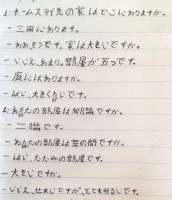 1.ホームステイ先の家はどこにありますか。
- 三田にあります。
- おおそうです。家は大きいですか。
- いいえ、あまり。部屋が五つです。
- 庭にはあります。
- はい、大きくないです。
2.あなたの部屋は何階ですか。
- 二階です。
- あなたの部屋は畳の間ですか。
- はい、たたみの部屋です。
- 大きいですか。
- いいえ、せまいですが、とても明るいです。